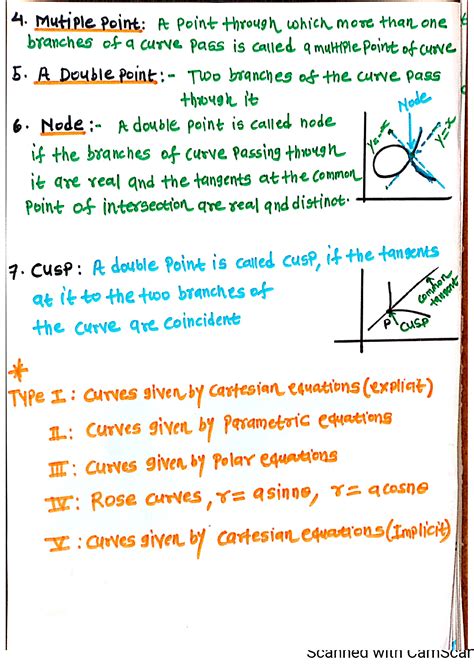 4. Mutiple Point: A Point through which more than one
branches of a curve pass is called a multiple point of curve
5. A Double Point:- Two branches of the curve pass
through it
6. Node:- A double point is called node
if the branches of curve passing through
it are real and the tangents at the common
Point of intersection are real and distinct.
Node
y=-x
y=x
7. Cusp: A double point is called cusp, if the tangents
at it to the two branches of
the curve are coincident
common
tangent
P
cusp
*
Type I: curves given by cartesian equations (explicit)
II: curves given by Parametric equations
III: curves given by Polar equations
IV: Rose curves, r= a sin nθ, r= a cos nθ
V: curves given by cartesian equations (Implicit)
Scanned with CamScan